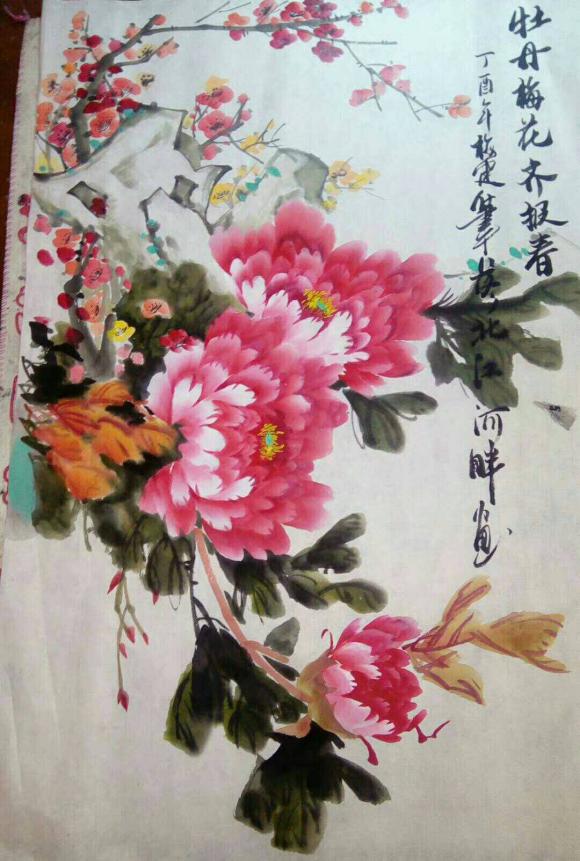 牡丹梅花齐报春
丁酉年 北江河畔